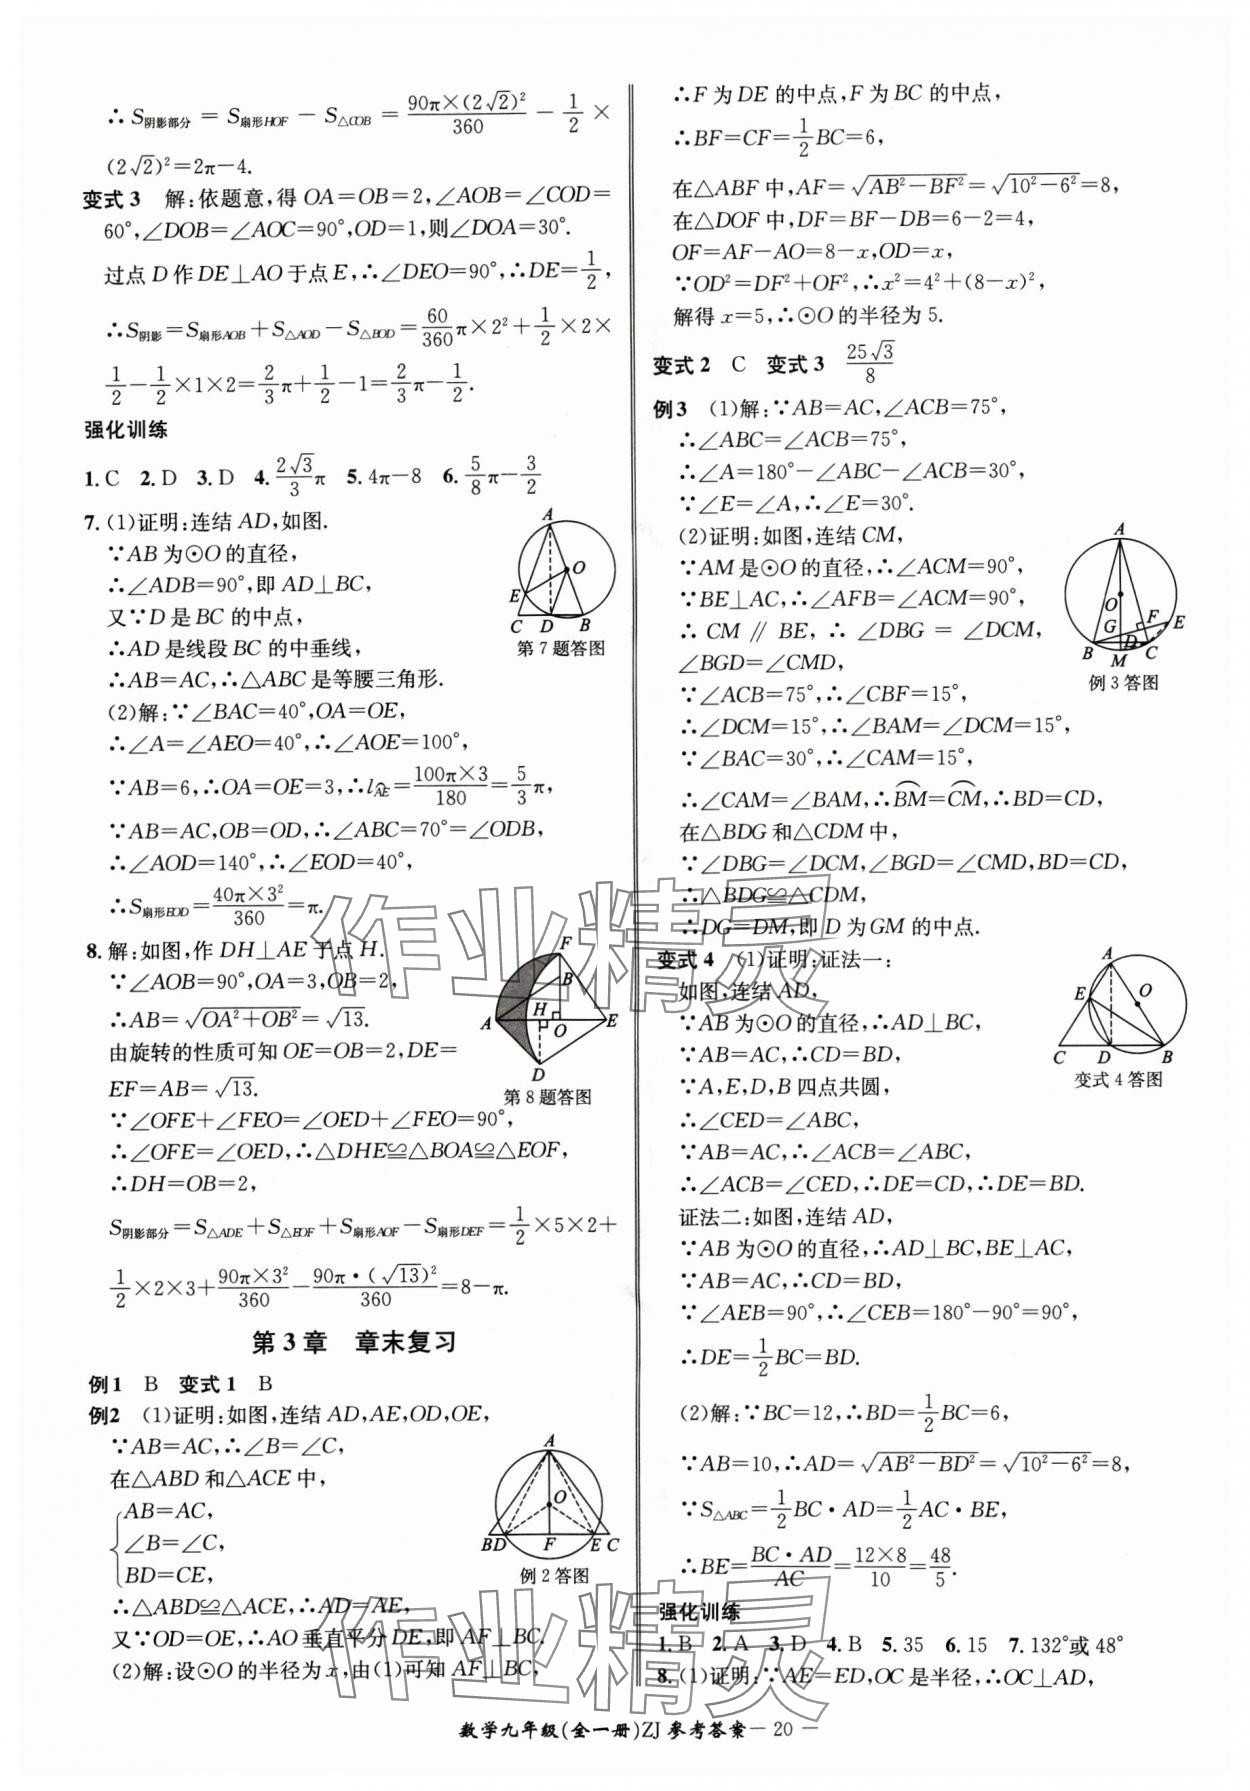 ∴S阴影部分 = S扇形HOF − S△COB = 90π×(2√2)²/360 − 1/2 ×
(2√2)²=2π−4.
变式3 解:依题意,得 OA=OB=2,∠AOB=∠COD=
60°,∠DOB=∠AOC=90°,OD=1,则∠DOA=30°.
过点 D 作 DE⊥AO 于点 E,∴∠DEO=90°,∴DE=1/2,
∴S阴影=S扇形AOB+S△AOD−S△BOD=60/360π×2²+1/2×2×
1/2−1/2×1×2=2/3π+1/2−1=2/3π−1/2.
强化训练
1. C 2. D 3. D 4. 2√3/3π 5. 4π−8 6. 5/8π−3/2
7. (1)证明:连结 AD,如图.
∵AB 为⊙O 的直径,
∴∠ADB=90°,即 AD⊥BC,
又∵D 是 BC 的中点,
∴AD 是线段 BC 的中垂线,
∴AB=AC,∴△ABC 是等腰三角形.
A
O
E
C D B
第 7 题答图
(2)解:∵∠BAC=40°,OA=OE,
∴∠A=∠AEO=40°,∴∠AOE=100°,
∵AB=6,∴OA=OE=3,∴l⌒AE=100π×3/180=5/3π,
∵AB=AC,OB=OD,∴∠ABC=70°=∠ODB,
∴∠AOD=140°,∴∠EOD=40°,
∴S扇形EOD=40π×3²/360=π.
8. 解:如图,作 DH⊥AE 于点 H.
∵∠AOB=90°,OA=3,OB=2,
∴AB=√(OA²+OB²)=√13.
由旋转的性质可知 OE=OB=2,DE=
EF=AB=√13.
F
B
H
A O E
D
第 8 题答图
∵∠OFE+∠FEO=∠OED+∠FEO=90°,
∴∠OFE=∠OED,∴△DHE≌△BOA≌△EOF,
∴DH=OB=2,
S阴影部分=S△ADE+S△EOF+S扇形AOF−S扇形DEF=1/2×5×2+
1/2×2×3+90π×3²/360−90π·(√13)²/360=8−π.
第 3 章 章末复习
例1 B 变式1 B
例2 (1)证明:如图,连结 AD,AE,OD,OE,
∵AB=AC,∴∠B=∠C,
在△ABD 和△ACE 中,
{AB=AC,
∠B=∠C,
BD=CE,
A
O
B D F E C
例 2 答图
∴△ABD≌△ACE,∴AD=AE,
又∵OD=OE,∴AO 垂直平分 DE,即 AF⊥BC.
(2)解:设⊙O 的半径为 x,由(1)可知 AF⊥BC,
∴F 为 DE 的中点,F 为 BC 的中点,
∴BF=CF=1/2BC=6,
在△ABF 中,AF=√(AB²−BF²)=√(10²−6²)=8,
在△DOF 中,DF=BF−DB=6−2=4,
OF=AF−AO=8−x,OD=x,
∵OD²=DF²+OF²,∴x²=4²+(8−x)²,
解得 x=5,∴⊙O 的半径为 5.
变式2 C 变式3 25√3/8
例3 (1)解:∵AB=AC,∠ACB=75°,
∴∠ABC=∠ACB=75°,
∴∠A=180°−∠ABC−∠ACB=30°,
∵∠E=∠A,∴∠E=30°.
(2)证明:如图,连结 CM,
∵AM 是⊙O 的直径,∴∠ACM=90°,
∵BE⊥AC,∴∠AFB=∠ACM=90°,
∴ CM ∥ BE, ∴ ∠DBG = ∠DCM,
∠BGD=∠CMD,
A
O
G F E
D
B M C
例 3 答图
∵∠ACB=75°,∴∠CBF=15°,
∴∠DCM=15°,∴∠BAM=∠DCM=15°,
∵∠BAC=30°,∴∠CAM=15°,
∴∠CAM=∠BAM,∴⌒BM=⌒CM,∴BD=CD,
在△BDG 和△CDM 中,
∵∠DBG=∠DCM,∠BGD=∠CMD,BD=CD,
∴△BDG≌△CDM,
∴DG=DM,即 D 为 GM 的中点.
变式4 (1)证明:证法一:
如图,连结 AD,
∵AB 为⊙O 的直径,∴AD⊥BC,
∵AB=AC,∴CD=BD,
∵A,E,D,B 四点共圆,
∴∠CED=∠ABC,
A
E O
C D B
变式 4 答图
∵AB=AC,∴∠ACB=∠ABC,
∴∠ACB=∠CED,∴DE=CD,∴DE=BD.
证法二:如图,连结 AD,
∵AB 为⊙O 的直径,∴AD⊥BC,BE⊥AC,
∵AB=AC,∴CD=BD,
∵∠AEB=90°,∴∠CEB=180°−90°=90°,
∴DE=1/2BC=BD.
(2)解:∵BC=12,∴BD=1/2BC=6,
∵AB=10,∴AD=√(AB²−BD²)=√(10²−6²)=8,
∵S△ABC=1/2BC·AD=1/2AC·BE,
∴BE=BC·AD/AC=12×8/10=48/5.
强化训练
1. B 2. A 3. D 4. B 5. 35 6. 15 7. 132°或 48°
8. (1)证明:∵AE=ED,OC 是半径,∴OC⊥AD,
作业精灵
作业精灵
数学九年级(全一册)ZJ 参考答案 — 20 —